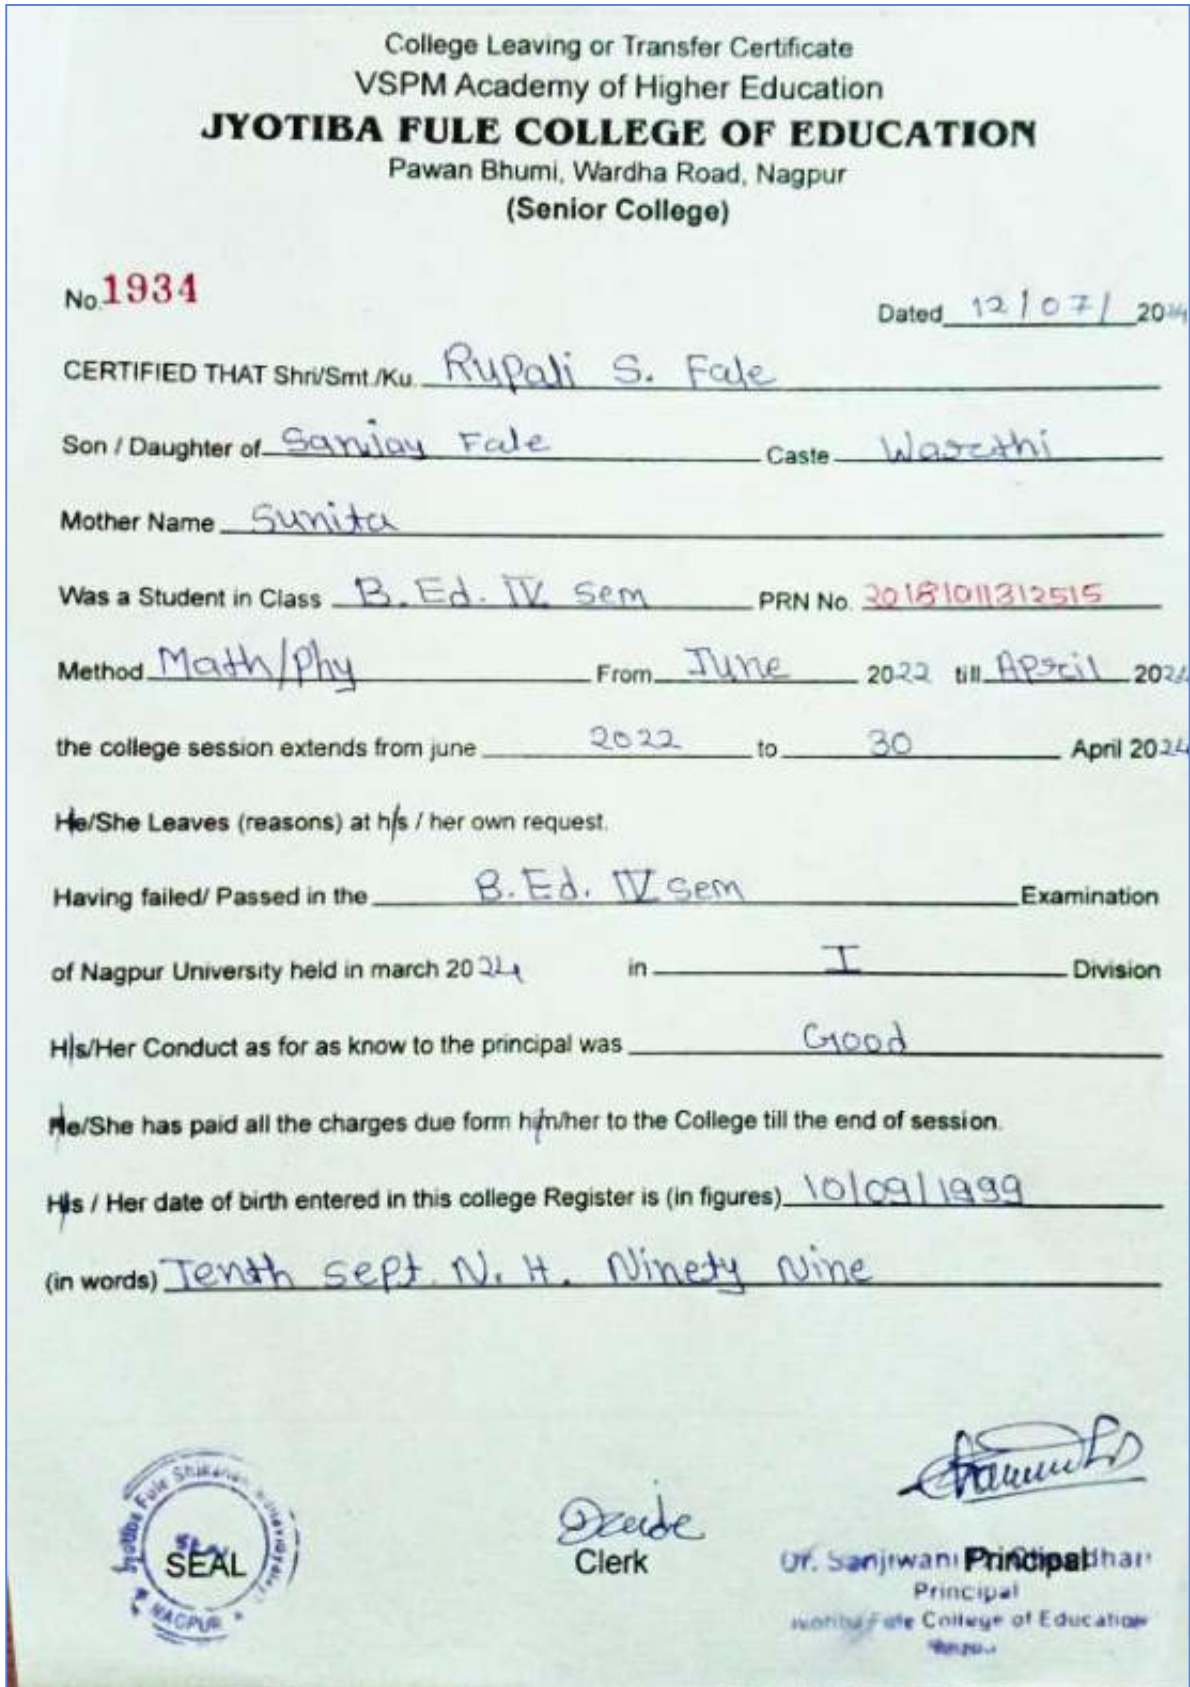 College Leaving or Transfer Certificate
VSPM Academy of Higher Education
JYOTIBA FULE COLLEGE OF EDUCATION
Pawan Bhumi, Wardha Road, Nagpur
(Senior College)
No. 1934
Dated 12/07/ 2024
CERTIFIED THAT Shri/Smt./Ku. Rupali S. Fale
Son / Daughter of Sanjay Fale Caste Warathi
Mother Name Sunita
Was a Student in Class B.Ed. IV Sem PRN No. 20181011312515
Method Math/Phy From June 2022 till April 2024
the college session extends from june 2022 to 30 April 2024
He/She Leaves (reasons) at his / her own request.
Having failed/ Passed in the B.Ed. IV Sem Examination
of Nagpur University held in march 2024 in I Division
His/Her Conduct as for as know to the principal was Good
He/She has paid all the charges due form him/her to the College till the end of session.
His / Her date of birth entered in this college Register is (in figures) 10/09/1999
(in words) Tenth Sept. N. H. Ninety Nine
Jyotiba Fule
SEAL
NAGPUR
Clerk
Dr. Sanjiwani
Principal
Principal
College of Education